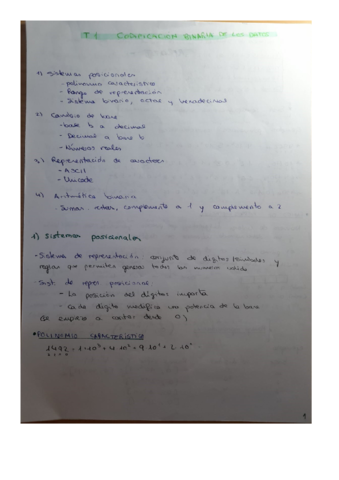 T1. CODIFICACION BINARIA DE LOS DATOS
1) Sistemas posicionales
- polinomio característico
- Rango de representación
- Sistema binario, octal y hexadecimal
2) Cambio de base
- base b a decimal
- Decimal a base b
- Números reales
3) Representación de caracteres
- ASCII
- Unicode
4) Aritmética binaria
Sumas, restas, complemento a 1 y complemento a 2
1) Sistemas posicionales
- Sistema de representación: conjunto de dígitos/símbolos y
reglas que permiten generar todos los números
Sist. de repres. posicional
- La posición del dígito importa
- Cada dígito modifica una potencia de la base
de empieza a contar desde 0)
• POLINOMIO CARACTERÍSTICO
1492 = 1·10³ + 4·10² + 9·10¹ + 2·10⁰
1